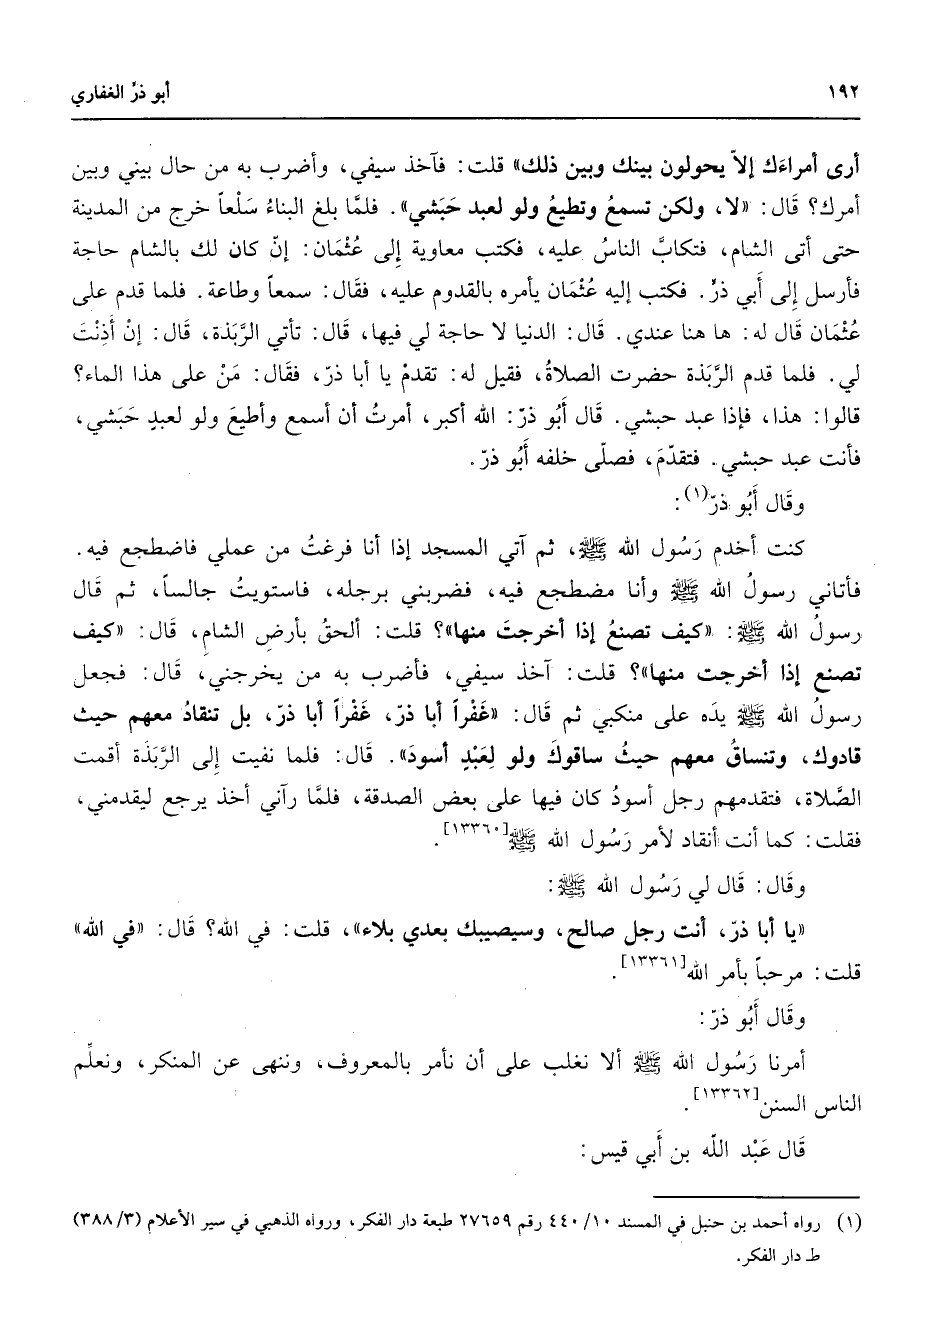 ١٩٢ أبو ذرّ الغفاري
أرى أمراءَك إلاّ يحولون بينك وبين ذلك» قلت: فآخذ سيفي، وأضرب به من حال بيني وبين
أمرك؟ قَال: «لا، ولكن تسمعُ وتطيعُ ولو لعبد حَبَشي». فلمَّا بلغ البناءُ سَلْعاً خرج من المدينة
حتى أتى الشام، فتكابَّ الناسُ عليه، فكتب معاوية إلى عُثْمَان: إنّ كان لك بالشام حاجة
فأرسل إلى أَبي ذرٍّ. فكتب إليه عُثْمَان يأمره بالقدوم عليه، فقَال: سمعاً وطاعة. فلما قدم على
عُثْمَان قَال له: ها هنا عندي. قَال: الدنيا لا حاجة لي فيها، قَال: تأتي الرَّبَذة، قَال: إنْ أَذِنْتَ
لي. فلما قدم الرَّبَذة حضرت الصلاةُ، فقيل له: تقدمْ يا أبا ذرّ، فقَال: مَنْ على هذا الماء؟
قالوا: هذا، فإذا عبد حبشي. قَال أَبُو ذرّ: الله أكبر، أمرتُ أن أسمع وأطيعَ ولو لعبدٍ حَبَشي،
فأنت عبد حبشي. فتقدّمَ، فصلّى خلفه أَبُو ذرّ.
وقَال أَبُو ذرّ(١):
كنت أخدم رَسُول الله ﷺ، ثم آتي المسجد إذا أنا فرغتُ من عملي فاضطجع فيه.
فأتاني رسولُ الله ﷺ وأنا مضطجع فيه، فضربني برجله، فاستويتُ جالساً، ثم قَال
رسولُ الله ﷺ: «كيف تصنعُ إذا أخرجتَ منها»؟ قلت: ألحقُ بأرضِ الشامِ، قَال: «كيف
تصنع إذا أخرجت منها»؟ قلت: آخذ سيفي، فأضرب به من يخرجني، قَال: فجعل
رسولُ الله ﷺ يدَه على منكبي ثم قَال: «غَفْراً أبا ذرّ، غَفْراً أبا ذرّ، بل تنقادُ معهم حيث
قادوك، وتنساقُ معهم حيثُ ساقوكَ ولو لِعَبْدٍ أسودَ». قَال: فلما نفيت إلى الرَّبَذة أقمت
الصَّلاة، فتقدمهم رجل أسودُ كان فيها على بعض الصدقة، فلمَّا رآني أخذ يرجع ليقدمني،
فقلت: كما أنت أنقاد لأمر رَسُول الله ﷺ[١٣٣٦٠].
وقَال: قَال لي رَسُول الله ﷺ:
«يا أبا ذرّ، أنت رجل صالح، وسيصيبك بعدي بلاء»، قلت: في الله؟ قَال: «في الله»
قلت: مرحباً بأمر الله[١٣٣٦١].
وقَال أَبُو ذرّ:
أمرنا رَسُول الله ﷺ ألا نغلب على أن نأمر بالمعروف، وننهى عن المنكر، ونعلِّم
الناس السنن[١٣٣٦٢].
قَال عَبْد اللّه بن أَبي قيس:
(١) رواه أحمد بن حنبل في المسند ١٠/ ٤٤٠ رقم ٢٧٦٥٩ طبعة دار الفكر، ورواه الذهبي في سير الأعلام (٣/ ٣٨٨)
ط دار الفكر.